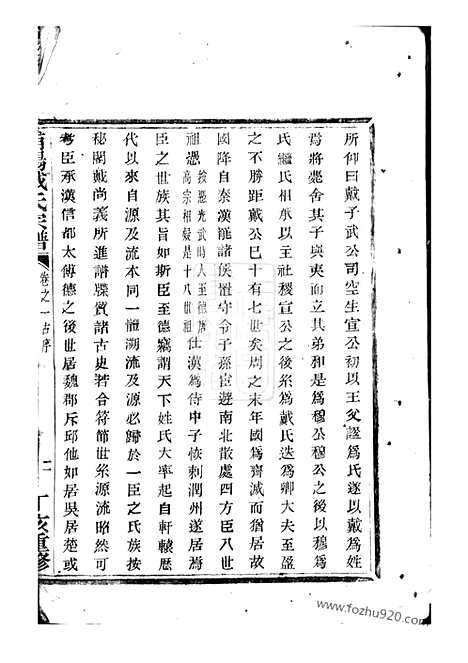 所仰曰戴子武公司空生宣公初以王父諡爲氏遂以戴爲姓
爲將薨舍其子與夷而立其弟和是爲穆公穆公以穆爲
氏繼氏相承以主社稷宣公之後系爲戴氏迭爲卿大夫至盈
之不勝距戴公巳十有七世矣周之末年國爲齊滅而猶居故
國降自秦漢罷諸侯置守令子孫官遊南北散處四方臣八世
祖憑按憑光武時人至德唐高宗相是十八世祖仕漢爲侍中子恢刺潤州遂居焉
臣之世族其旨如斯臣至德竊謂天下姓氏大率起自軒轅歷
代以來自源及流本同一體溯流及源必歸於一臣之氏族按
秘閣戴尚義所進譜牒質諸古史若合符節世系源流昭然可
考臣承漢信都太傅德之後世居魏郡斥邱他如居吳居楚或
戴氏宗譜
卷之一古序
丁亥重修
www.fozhu920.com